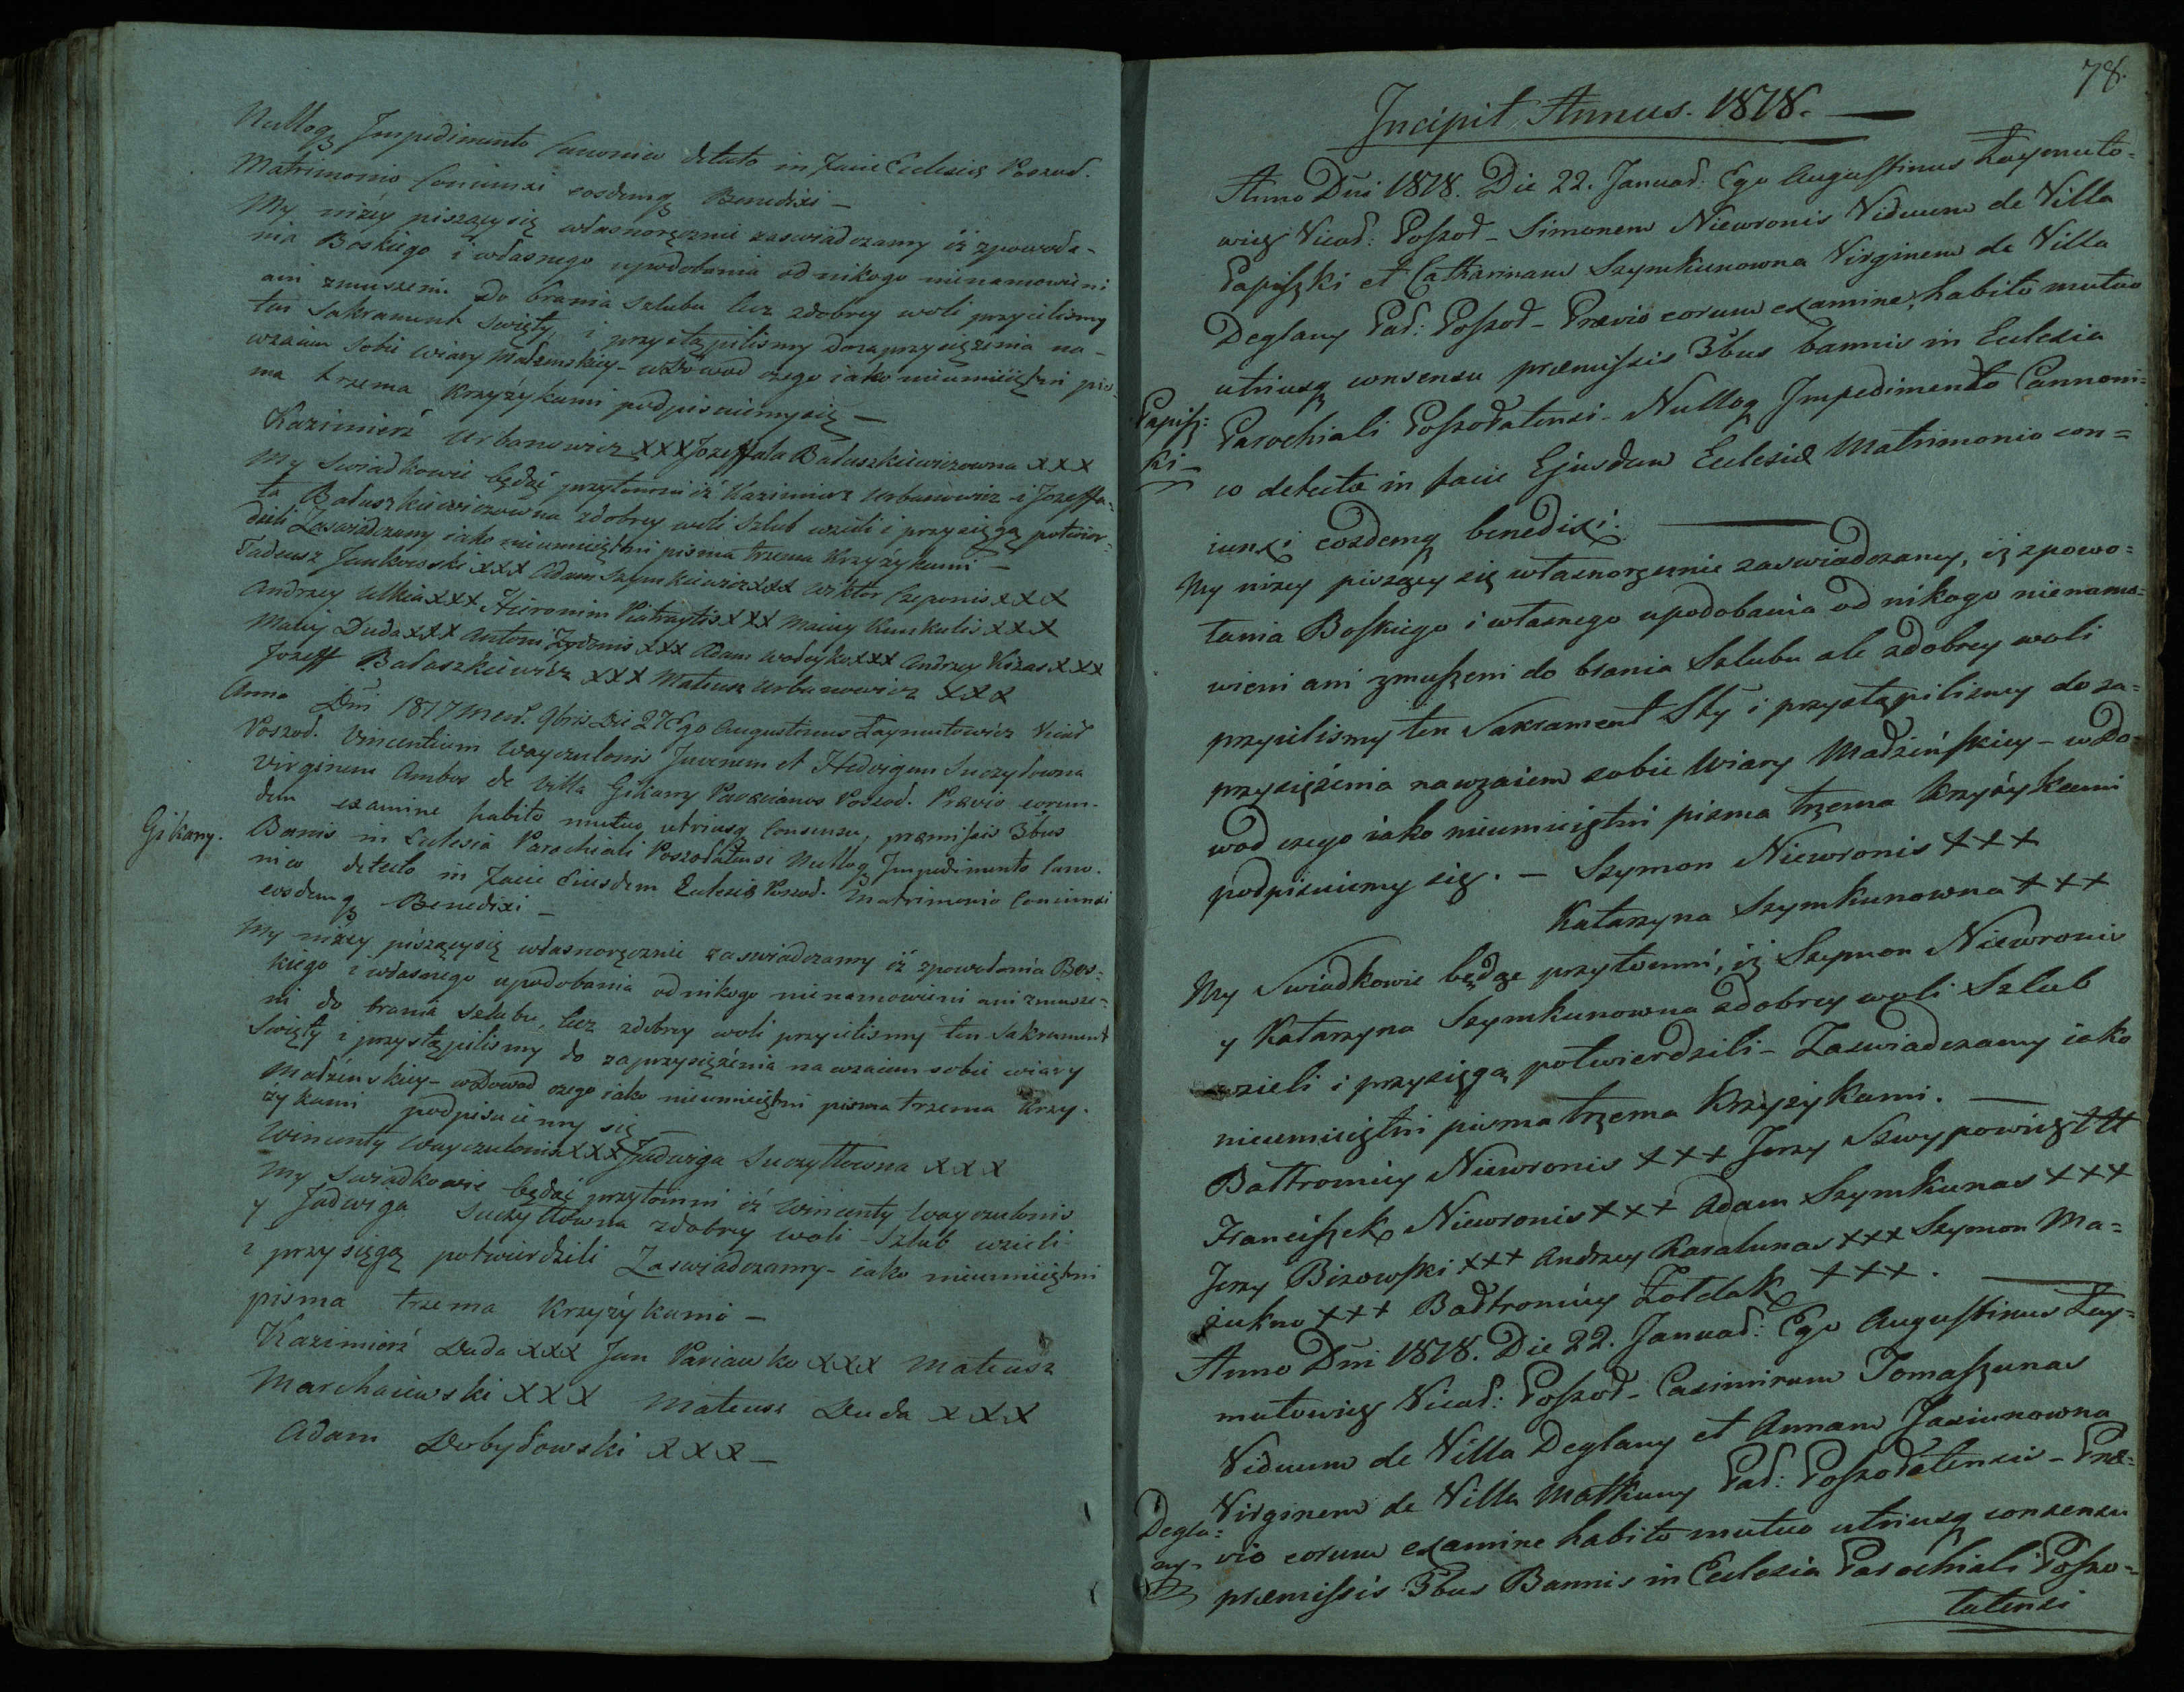 Nulloq Impedimento Canonico detecto in Facie Ecclesiæ Poszod.
Matrimonio Coniunxi eosdemq Benedixi –
My niżey piszący się własnoręcznie zaswiadczamy iż zpowoła-
nia Boskiego i własnego upodobania od nikogo nienamowieni
ani zmuszeni do brania Szlubu lecz zdobrey woli przyieliśmy
ten Sakrament Swięty, i przystąpiliśmy do zaprzysiężenia na-
wzaiem Sobie Wiary Małżenskiey – wdowod czego iako nieumieiętni pis-
ma trzema Krzyżykami podpisuiemy się –
Kazimierz Urbanowicz XXX Jozeffata Bałuszkiewiczowna XXX
My Swiadkowie będąc przytomni iż Kazimierz Urbanowicz i Jozeffa-
ta Bałuszkiewiczowna zdobrey woli Szlub wzieli i przysięgą potwier-
dzili Zaswiadczamy iako nieumieiętni pisma trzema Krzyżykami –
Tadeusz Jankowski XXX Adam Szymkiewicz XXX Wiktor Czeponis XXX
Andrzey Ulkia XXX Hieronim Piatraytis XXX Maciey Kunkulis XXX
Maciey Duda XXX Antoni Zydonis XXX Adam Wodeyko XXX Andrzey Kizas XXX
Jozeff Bałuszkiewicz XXX Mateusz Urbanowicz XXX
Anno Dni 1817 Mens. 9bris Die 27 Ego Augustinus Zaymutowicz Vicar
Poszod. Vincentium Wayczulonis Juvenem et Hedvigem Suczyłowna
Virginem Ambos de Villa Gikany Parochianos Poszod. Prævio eorun-
Gikany.
dem examine habito mutuo utriusq Consensu, præmissis 3bus
Bannis in Ecclesia Parochiali Poszodatensi Nulloq Impedimento Cano-
nico detecto in Facie Eiusdem Ecclesiæ Poszod. Matrimonio Coniunxi
eosdemq Benedixi –
My niżey piszący się własnoręcznie zaswiadczamy iż zpowołania Bos-
kiego i własnego upodobania od nikogo nienamowieni ani zmusze-
ni do brania Szlubu, lecz zdobrey woli przyieliśmy ten Sakrament
Swięty i przystąpiliśmy do zaprzysiężenia nawzaiem sobie wiary
Małżenskiey – wdowod czego iako nieumieiętni pisma trzema Krzy-
żykami podpisuiemy się
Wincenty Wayczulonis XXX Jadwiga Suczyłłowna XXX
My Swiadkowie będąc przytomni iż Wincenty Wayczulonis
y Jadwiga Suczyłłowna zdobrey woli Szlub wzieli
i przysięgą potwierdzili Zaswiadczamy – iako nieumieiętni
pisma trzema Krzyżykami –
Kazimierz Duda XXX Jan Pariawko XXX Mateusz
Marchaiewski XXX Mateusz Duda XXX
Adam Dobyłowski XXX –
78.
Incipit Annus. 1818.
Anno Dni 1818. Die 22. Januar: Ego Augustinus Zaymuto-
wicz Vicar: Poszod – Simonem Niewronis Viduum de Villa
Papiszki et Catharinam Szymkunowna Virginem de Villa
Deglany Par: Poszod – Prævio eorum examine, habito mutuo
utriusq consensu præmissis 3bus bannis in Ecclesia
Papisz=
ki –
Parochiali Poszodatensi – Nulloq Impedimento Cannoni=
co detecto in facie Ejusdem Ecclesiæ Matrimonio con=
iunxi eosdemq benedixi.
My niżey piszący się własnoręcznie zaswiadczamy, iż zpowo=
łania Boskiego i własnego upodobania od nikogo nienamo=
wieni ani zmuszeni do brania Szlubu ale zdobrey woli
przyieliśmy ten Sakrament Sty i przystąpiliśmy do za=
przysiężenia nawzaiem sobie Wiary Małżeńskiey – w do=
wod czego iako nieumieiętni pisma trzema Krzyżykami
podpisuiemy się. – Szymon Niewronis +++
Katarzyna Szymkunowna +++
My Swiadkowie będąc przytomni, iż Szymon Niewronis
y Katarzyna Szymkunowna zdobrey woli Szlub
wzieli i przysięgą potwierdzili – Zaswiadczamy iako
nieumieiętni pisma trzema Krzyżykami.
Bałtromiey Niewronis +++ Jerzy Szwypowicz +++
Franciszek Niewronis +++ Adam Szymkunas +++
Jerzy Bizowski +++ Andrzey Karalunas +++ Szymon Ma=
żukno +++ Bałtromiey Żołdak +++.
Anno Dni 1818. Die 22. Januar: Ego Augustinus Zay=
mutowicz Vicar: Poszod – Casimirum Tomaszunas
Viduum de Villa Deglany et Annam Jasiunowna
Virginem de Villa Matkuny Par: Poszodatensis – Præ=
Degla=
ny –
vio eorum examine habito mutuo utriusq consensu
præmissis 3bus Bannis in Ecclesia Parochiali Poszo=
tatensi